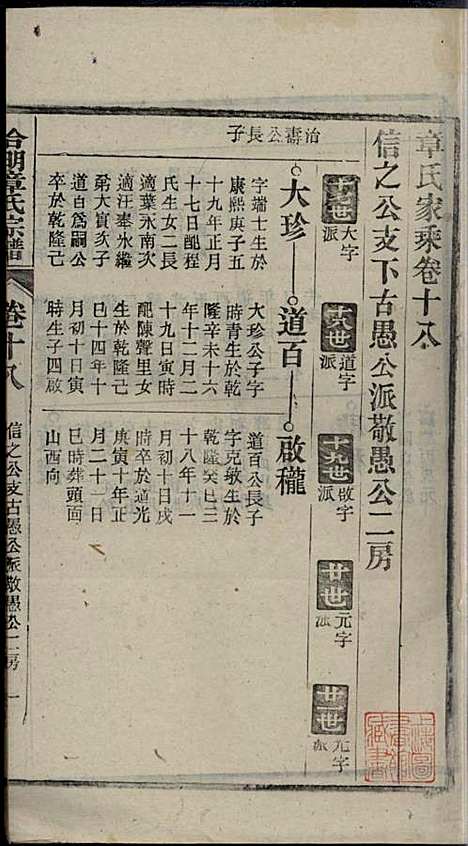 章氏家乘卷十八
信之公支下古愚公派敬愚公二房
十七世
大字派
十八世
道字派
十九世
啟字派
廿世
元字派
廿一世
派
治壽公長子
大珍
道百
啟穠
字端士生於
康熙庚子五
十九年正月
十七日配程
氏生女二長
適葉永南次
適汪奉永繼
弟大寅次子
道百為嗣公
卒於乾隆己
大珍公子字
時青生於乾
隆辛未十六
年十二月二
十九日寅時
配陳聲里女
生於乾隆己
巳十四年十
月初十日寅
時生子四啟
道百公長子
字克敏生於
乾隆癸巳三
十八年十一
月初十日戌
時卒於道光
庚寅十年正
月二十一日
巳時葬頭面
山酉向
章氏宗譜
卷十八
信之公支古愚公派敬愚公二房
一
上海圖書館藏書